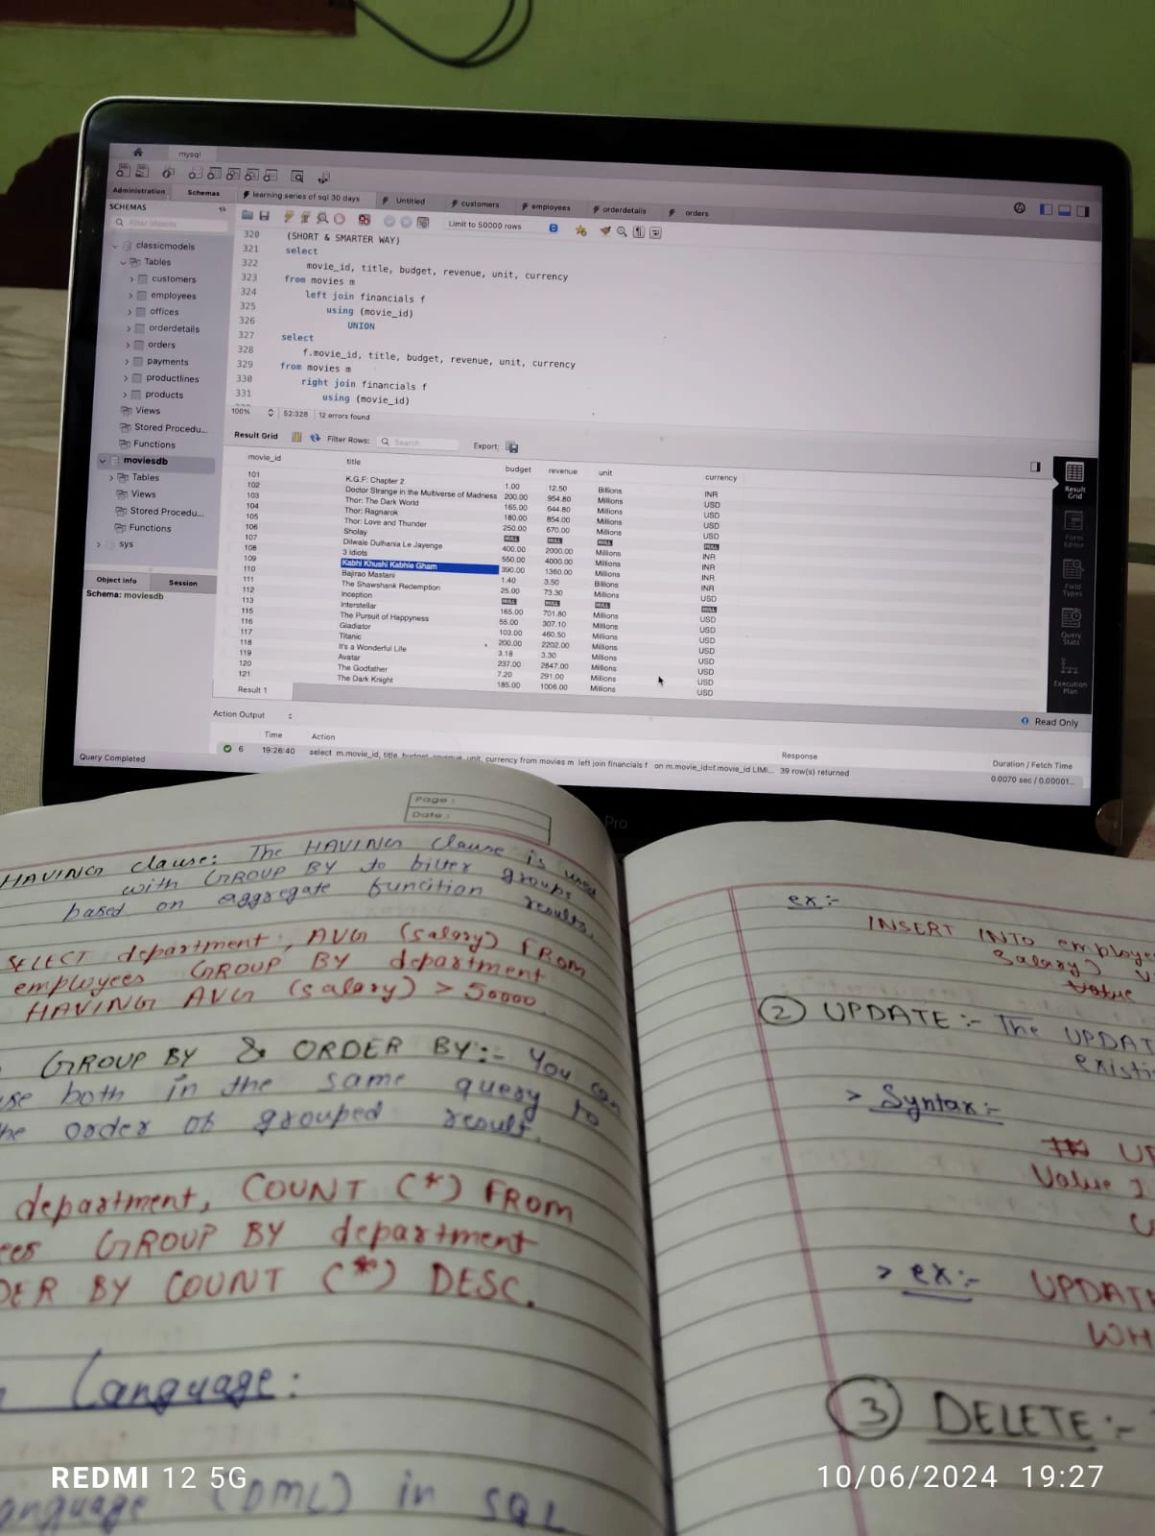 mysql
Administration Schemas
learning series of sql 30 days Untitled customers employees orderdetails orders
SCHEMAS
Filter objects
classicmodels
Tables
customers
employees
offices
orderdetails
orders
payments
productlines
products
Views
Stored Procedu...
Functions
moviesdb
Tables
Views
Stored Procedu...
Functions
sys
Object Info Session
Schema: moviesdb
Query Completed
Limit to 50000 rows
320 (SHORT & SMARTER WAY)
321 select
322 movie_id, title, budget, revenue, unit, currency
323 from movies m
324 left join financials f
325 using (movie_id)
326 UNION
327 select
328 f.movie_id, title, budget, revenue, unit, currency
329 from movies m
330 right join financials f
331 using (movie_id)
100% 52:328 12 errors found
Result Grid Filter Rows: Search Export:
movie_id title budget revenue unit currency
101 K.G.F: Chapter 2 1.00 12.50 Billions INR
102 Doctor Strange in the Multiverse of Madness 200.00 954.80 Millions USD
103 Thor: The Dark World 165.00 644.80 Millions USD
104 Thor: Ragnarok 180.00 854.00 Millions USD
105 Thor: Love and Thunder 250.00 670.00 Millions USD
106 Sholay NULL NULL NULL NULL
107 Dilwale Dulhania Le Jayenge 400.00 2000.00 Millions INR
108 3 Idiots 550.00 4000.00 Millions INR
109 Kabhi Khushi Kabhie Gham 390.00 1360.00 Millions INR
110 Bajirao Mastani 1.40 3.50 Billions INR
111 The Shawshank Redemption 25.00 73.30 Millions USD
112 Inception NULL NULL NULL NULL
113 Interstellar 165.00 701.80 Millions USD
115 The Pursuit of Happyness 55.00 307.10 Millions USD
116 Gladiator 103.00 460.50 Millions USD
117 Titanic 200.00 2202.00 Millions USD
118 It's a Wonderful Life 3.18 3.30 Millions USD
119 Avatar 237.00 2847.00 Millions USD
120 The Godfather 7.20 291.00 Millions USD
121 The Dark Knight 185.00 1006.00 Millions USD
Result Grid
Form Editor
Field Types
Query Stats
Execution Plan
Result 1
Read Only
Action Output
Time Action Response Duration / Fetch Time
6 19:26:40 select m.movie_id, title, budget, revenue, unit, currency from movies m left join financials f on m.movie_id=f.movie_id LIMI... 39 row(s) returned 0.0070 sec / 0.00001...
Pro
Page :
Date :
HAVING clause: The HAVING clause is used
with GROUP BY to filter groups
based on aggregate funcition results.
SELECT department, AVG (salary) FROM
employees GROUP BY department
HAVING AVG (salary) > 50000
GROUP BY & ORDER BY:- You can
use both in the same query to
the order of grouped result.
department, COUNT (*) FROM
ees GROUP BY department
DER BY COUNT (*) DESC.
Language:
anguage (DML) in SQL
ex:-
INSERT INTO employe
Salary) V
Value
② UPDATE:- The UPDAT
existi
> Syntax:-
UP
Value 1
U
> ex:- UPDATE
WH
③ DELETE:-
REDMI 12 5G
10/06/2024 19:27